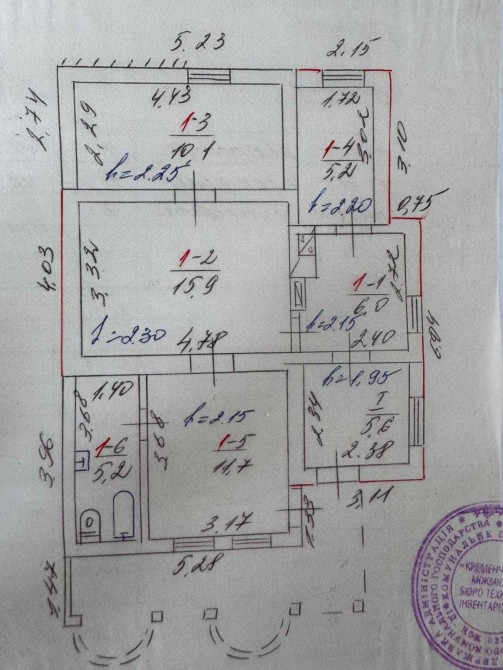 5.23
2.15
2,74
2,29
4,43
1-3
10,1
h=2.25
1,72
3,02
1-4
5,2
h=2.20
3,10
0,75
4,03
3,32
1-2
15,9
h=2.30
4,78
1-1
6,0
h=2.15
2,40
3,96
3,68
1,40
1-6
5,2
3,68
h=2.15
1-5
11,7
3,17
2,34
h=1,95
I
5,6
2,38
3,11
5,28
1,47